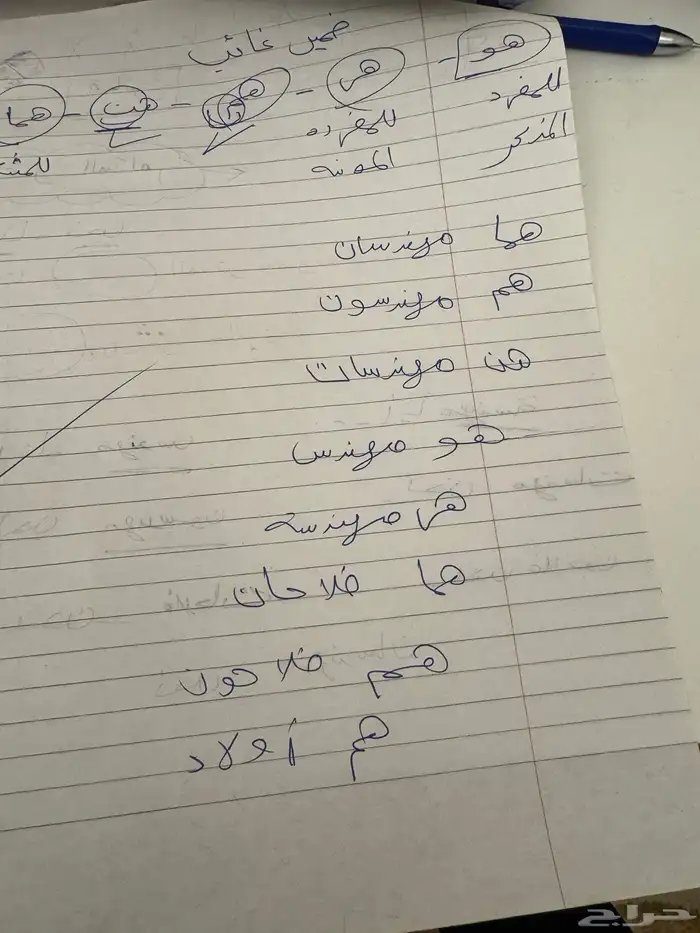 ضمير غائب
هو - هي - هم - هن - هما
للمفرد للمفرده
المذكر المونه
هما مهندسان
هم مهندسون
هن مهندسات
هو مهندس
هي مهندسة
هما فلاحان
هم فلاحون
هم أولاد
حراج